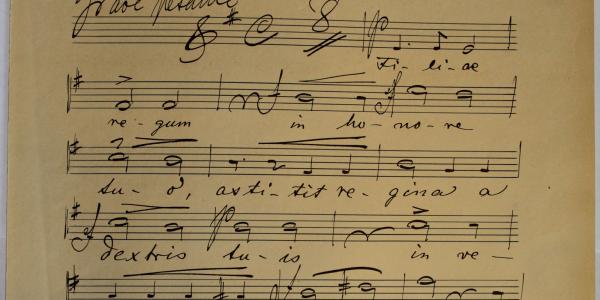 Grave pesante
8
Fi-li-ae
re-gum in ho-no-re
tu-o, as-ti-tit re-gina a
dextris tu-is in ve-